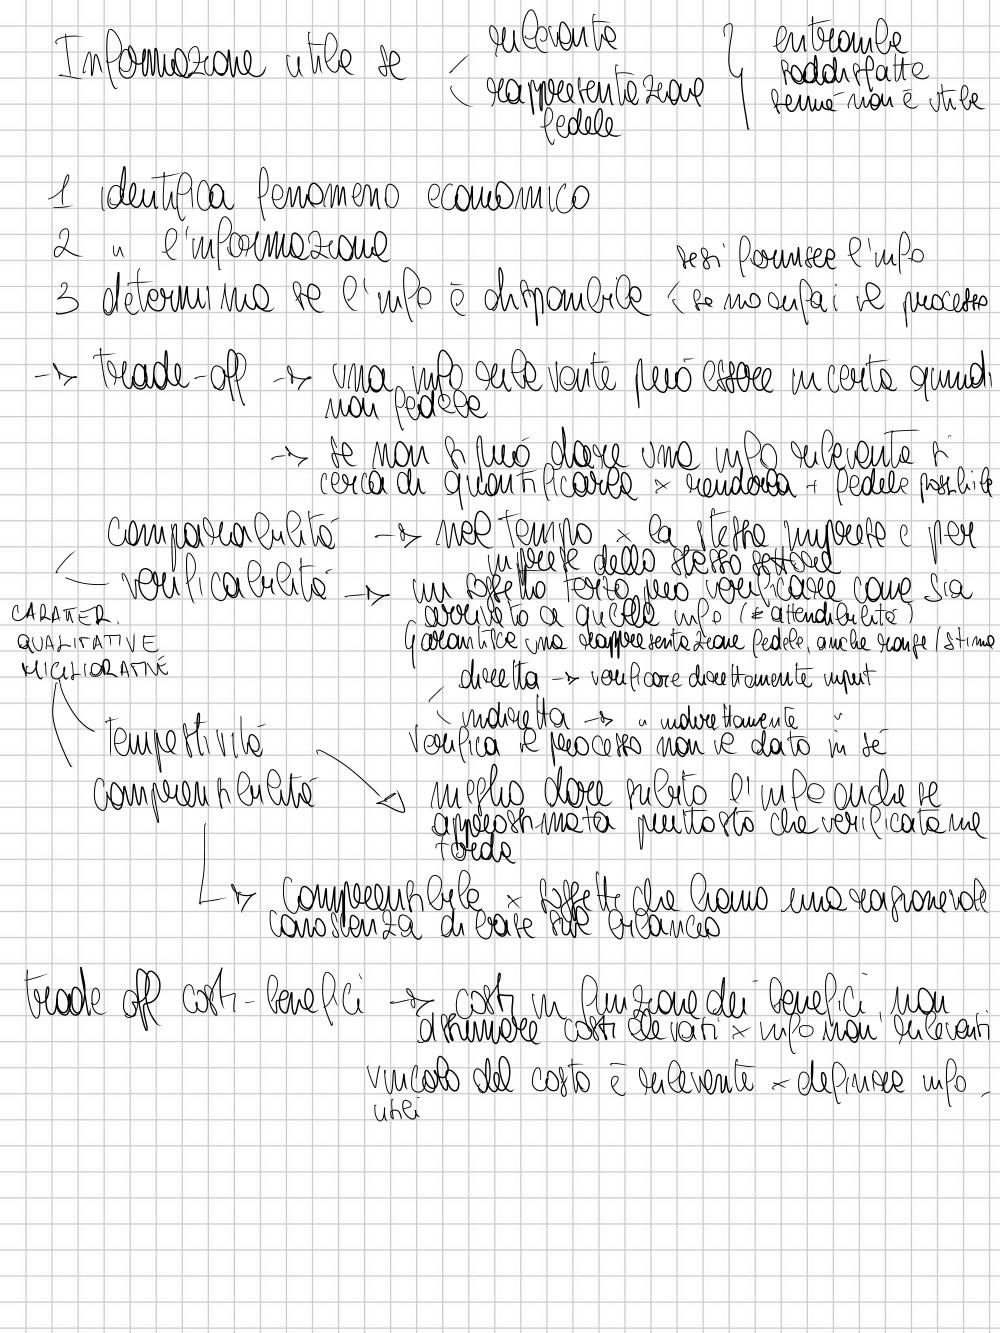 Informazione utile se
rilevante
rappresentazione
fedele
entrambe
soddisfatte
sennò non è utile
1 identifica fenomeno economico
2 " l'informazione
3 determina se l'info è disponibile
se sì fornisce l'info
se no rifai il processo
-> trade-off -> una info rilevante può essere incerta quindi
non fedele
-> se non si può dare una info rilevante si
cerca di quantificarla x renderla + fedele possibile
comparabilità -> nel tempo x la stessa impresa e per
imprese dello stesso settore
verificabilità -> un soggetto terzo può verificare come sia
arrivato a quella info (≠ attendibilità)
garantisce una rappresentazione fedele, anche range/stima
CARATTER.
QUALITATIVE
MIGLIORATIVE
diretta -> verificare direttamente input
indiretta -> " indirettamente "
verifica il processo non il dato in sé
tempestività
comprensibilità
meglio dare subito l'info anche se
approssimata piuttosto che verificata ma
tardi
comprensibile x soggetti che hanno una ragionevole
conoscenza di base sul bilancio
trade off costi-benefici -> costi in funzione dei benefici non
costi elevati x info non rilevanti
vincolo del costo è rilevante x definire info
utili